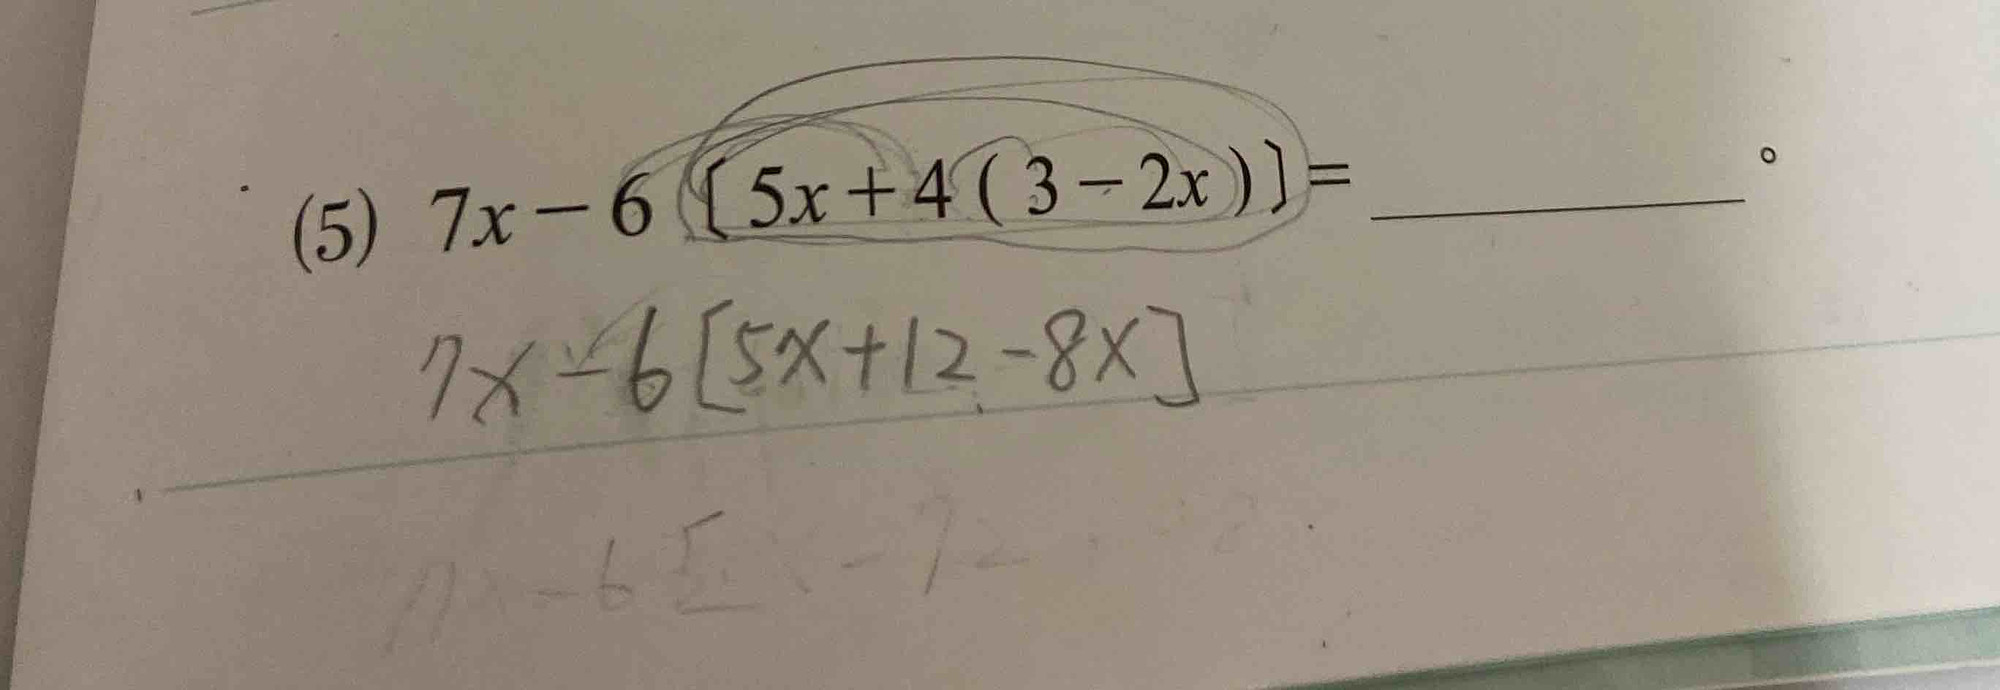 (5) 7x－6〔5x＋4(3－2x)〕＝________。
7x-6[5x+12-8x]